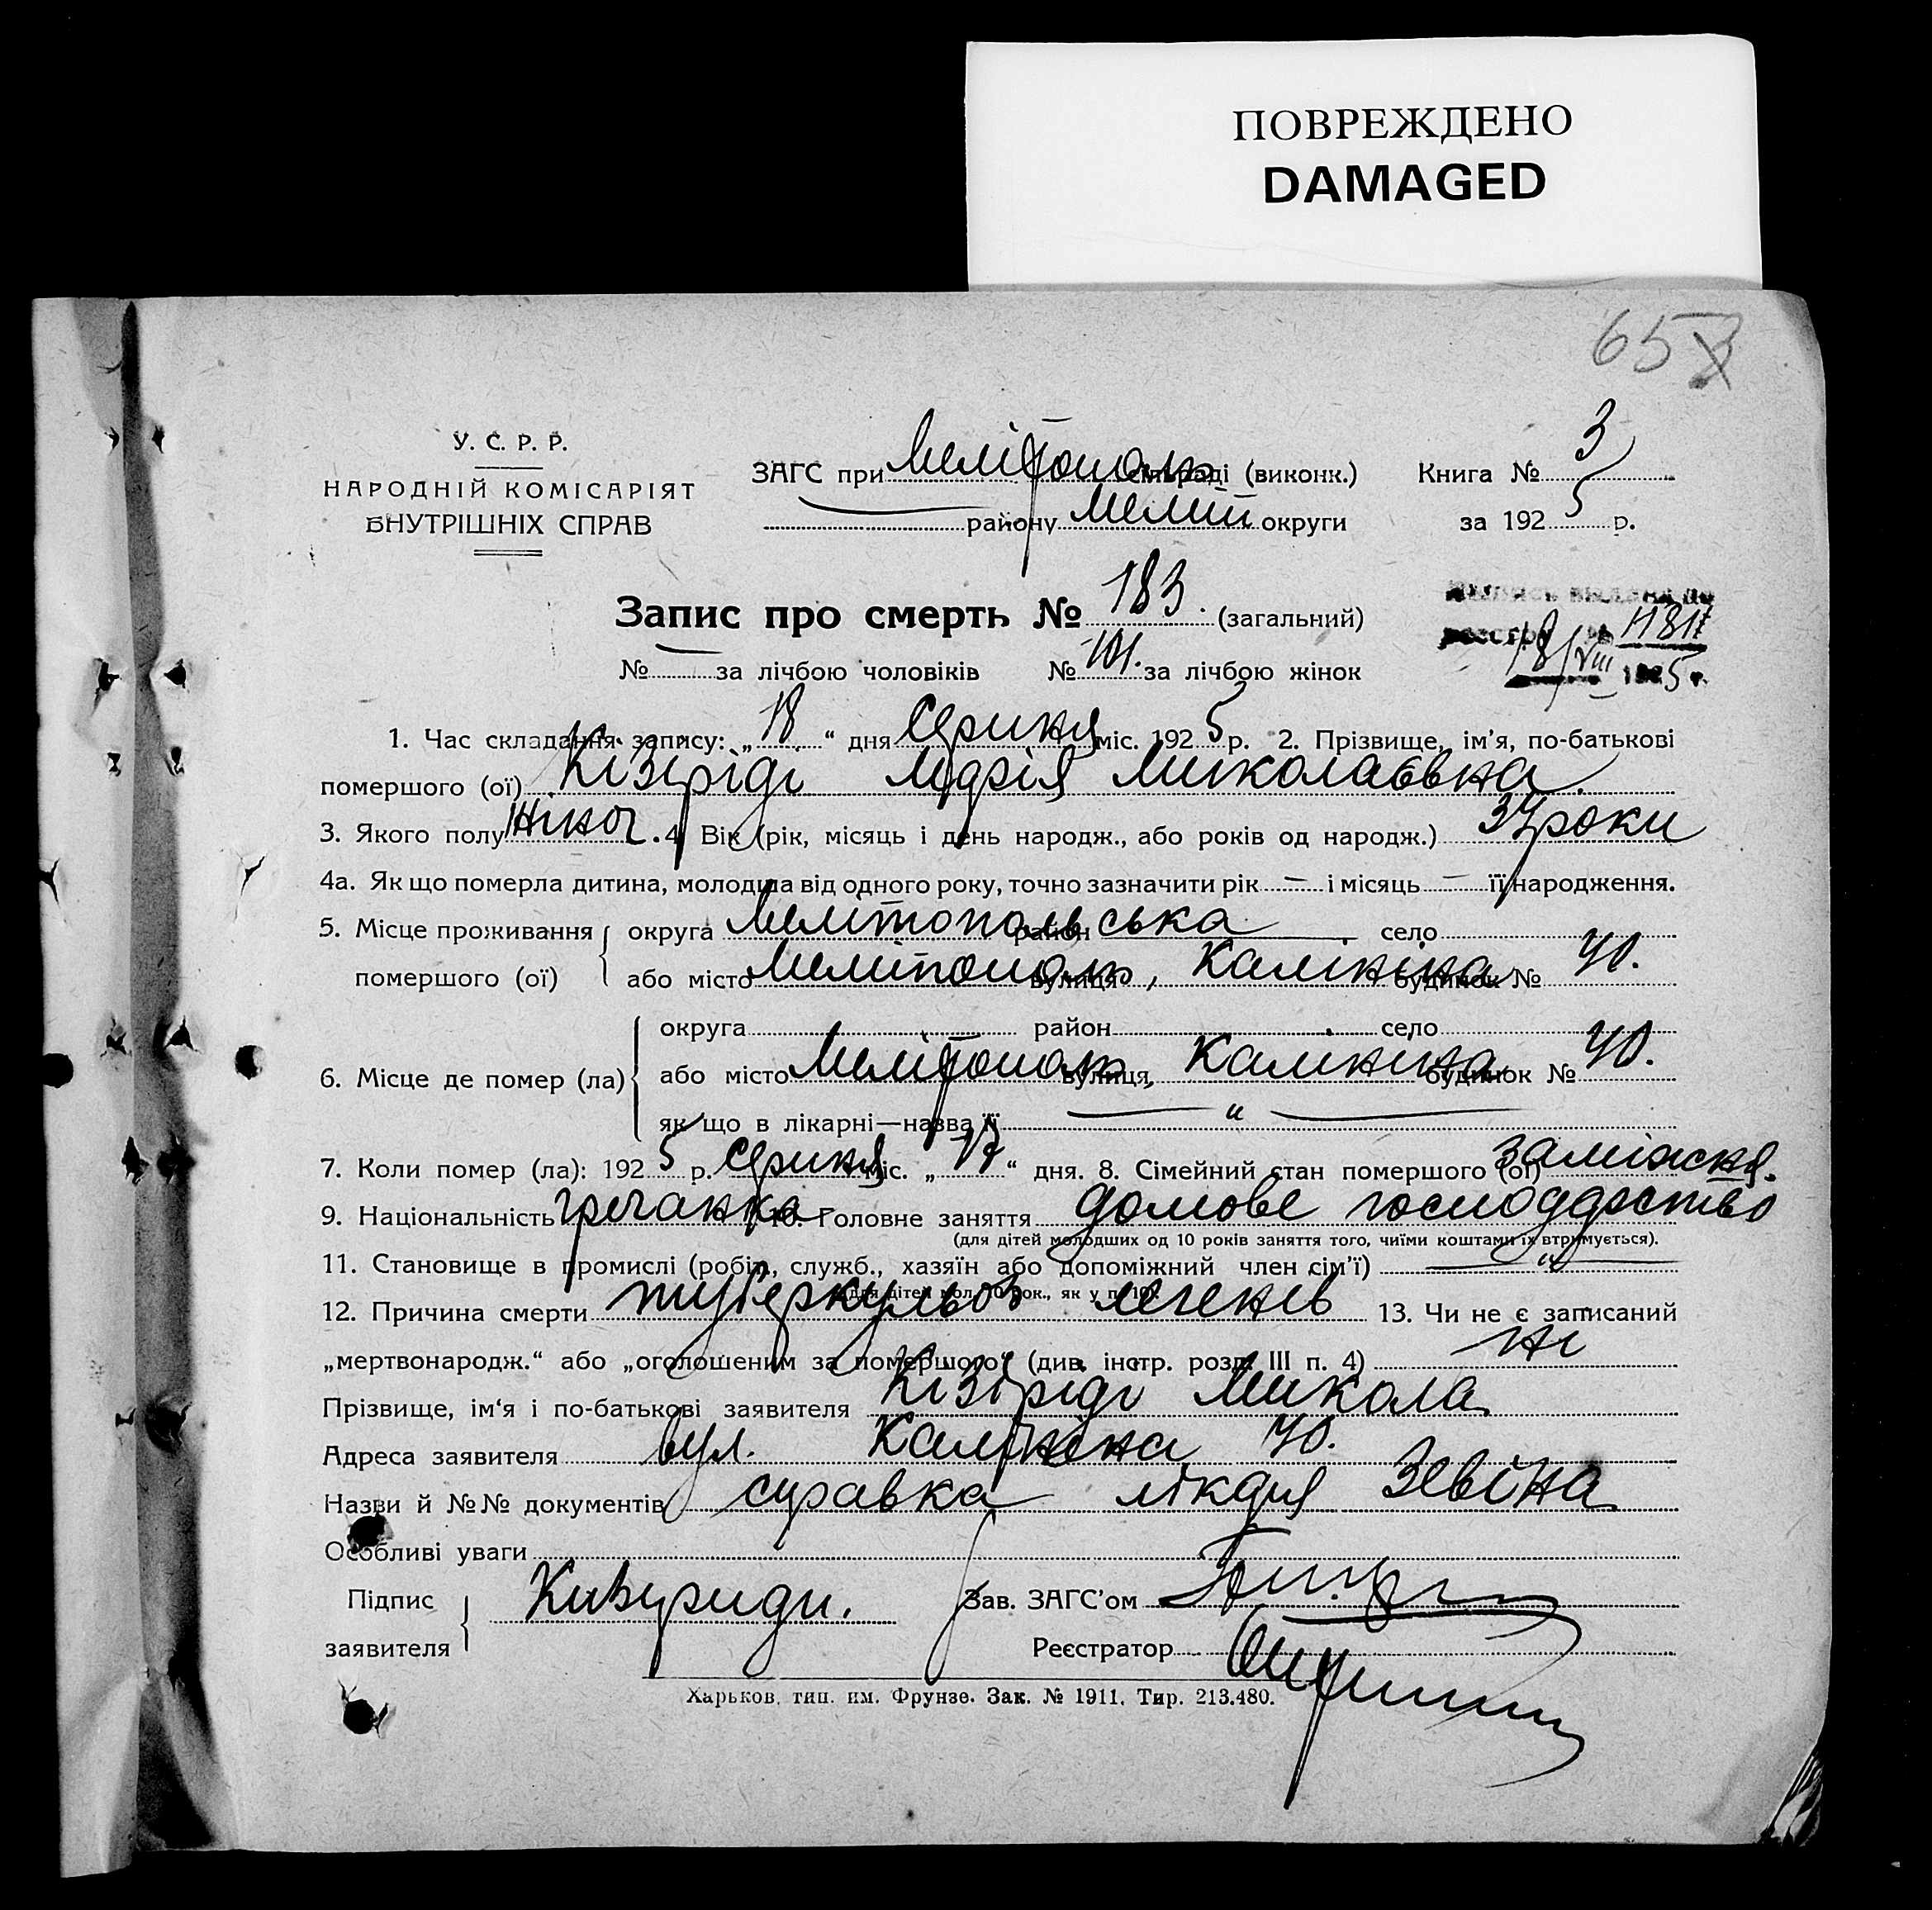 ПОВРЕЖДЕНО
DAMAGED
65
У. С. Р. Р.
НАРОДНІЙ КОМІСАРІЯТ
ВНУТРІШНІХ СПРАВ
ЗАГС при Мелітополь сільраді (виконк.)
району Меліт округи
Книга № 3
за 1925 р.
Запис про смерть № 183. (загальний)
№ — за лічбою чоловіків № 101. за лічбою жінок
18/VIII 1925 г.
1. Час складання запису: „18“ дня Серпня міс. 1925 р. 2. Прізвище, ім'я, по-батькові
помершого (ої) Кізіріді Марія Миколаєвна.
3. Якого полу жіноч. 4. Вік (рік, місяць і день народж., або років од народж.) 37 роки
4а. Як що померла дитина, молодша від одного року, точно зазначити рік — і місяць — її народження.
5. Місце проживання помершого (ої) округа Мелітопольська район село
або місто Мелітополь, вулиця Калініна будинок № 40.
6. Місце де помер (ла) округа район село
або місто Мелітополь, вулиця Калініна будинок № 40.
як що в лікарні—назва її — „ —
7. Коли помер (ла): 1925 р. Серпня міс. „17“ дня. 8. Сімейний стан помершого (ої) заміжня.
9. Національність гречанка 10. Головне заняття домове господарство
(для дітей молодших од 10 років заняття того, чиїми коштами їх втримується).
11. Становище в промислі (робіт., служб., хазяїн або допоміжний член сім'ї) — „ —
(для дітей мол. 10 рок., як у п. 10).
12. Причина смерти туберкульоз легенів 13. Чи не є записаний
„мертвонародж.“ або „оголошеним за помершого“ (див. інстр. розд. III п. 4) ні
Прізвище, ім'я і по-батькові заявителя Кізіріді Микола
Адреса заявителя вул. Калініна 40.
Назви й №№ документів справка лікаря Зевіна
Особливі уваги
Підпис заявителя Кизириди.
Зав. ЗАГС'ом
Реєстратор
Харьков, тип. им. Фрунзе. Зак. № 1911. Тир. 213.480.